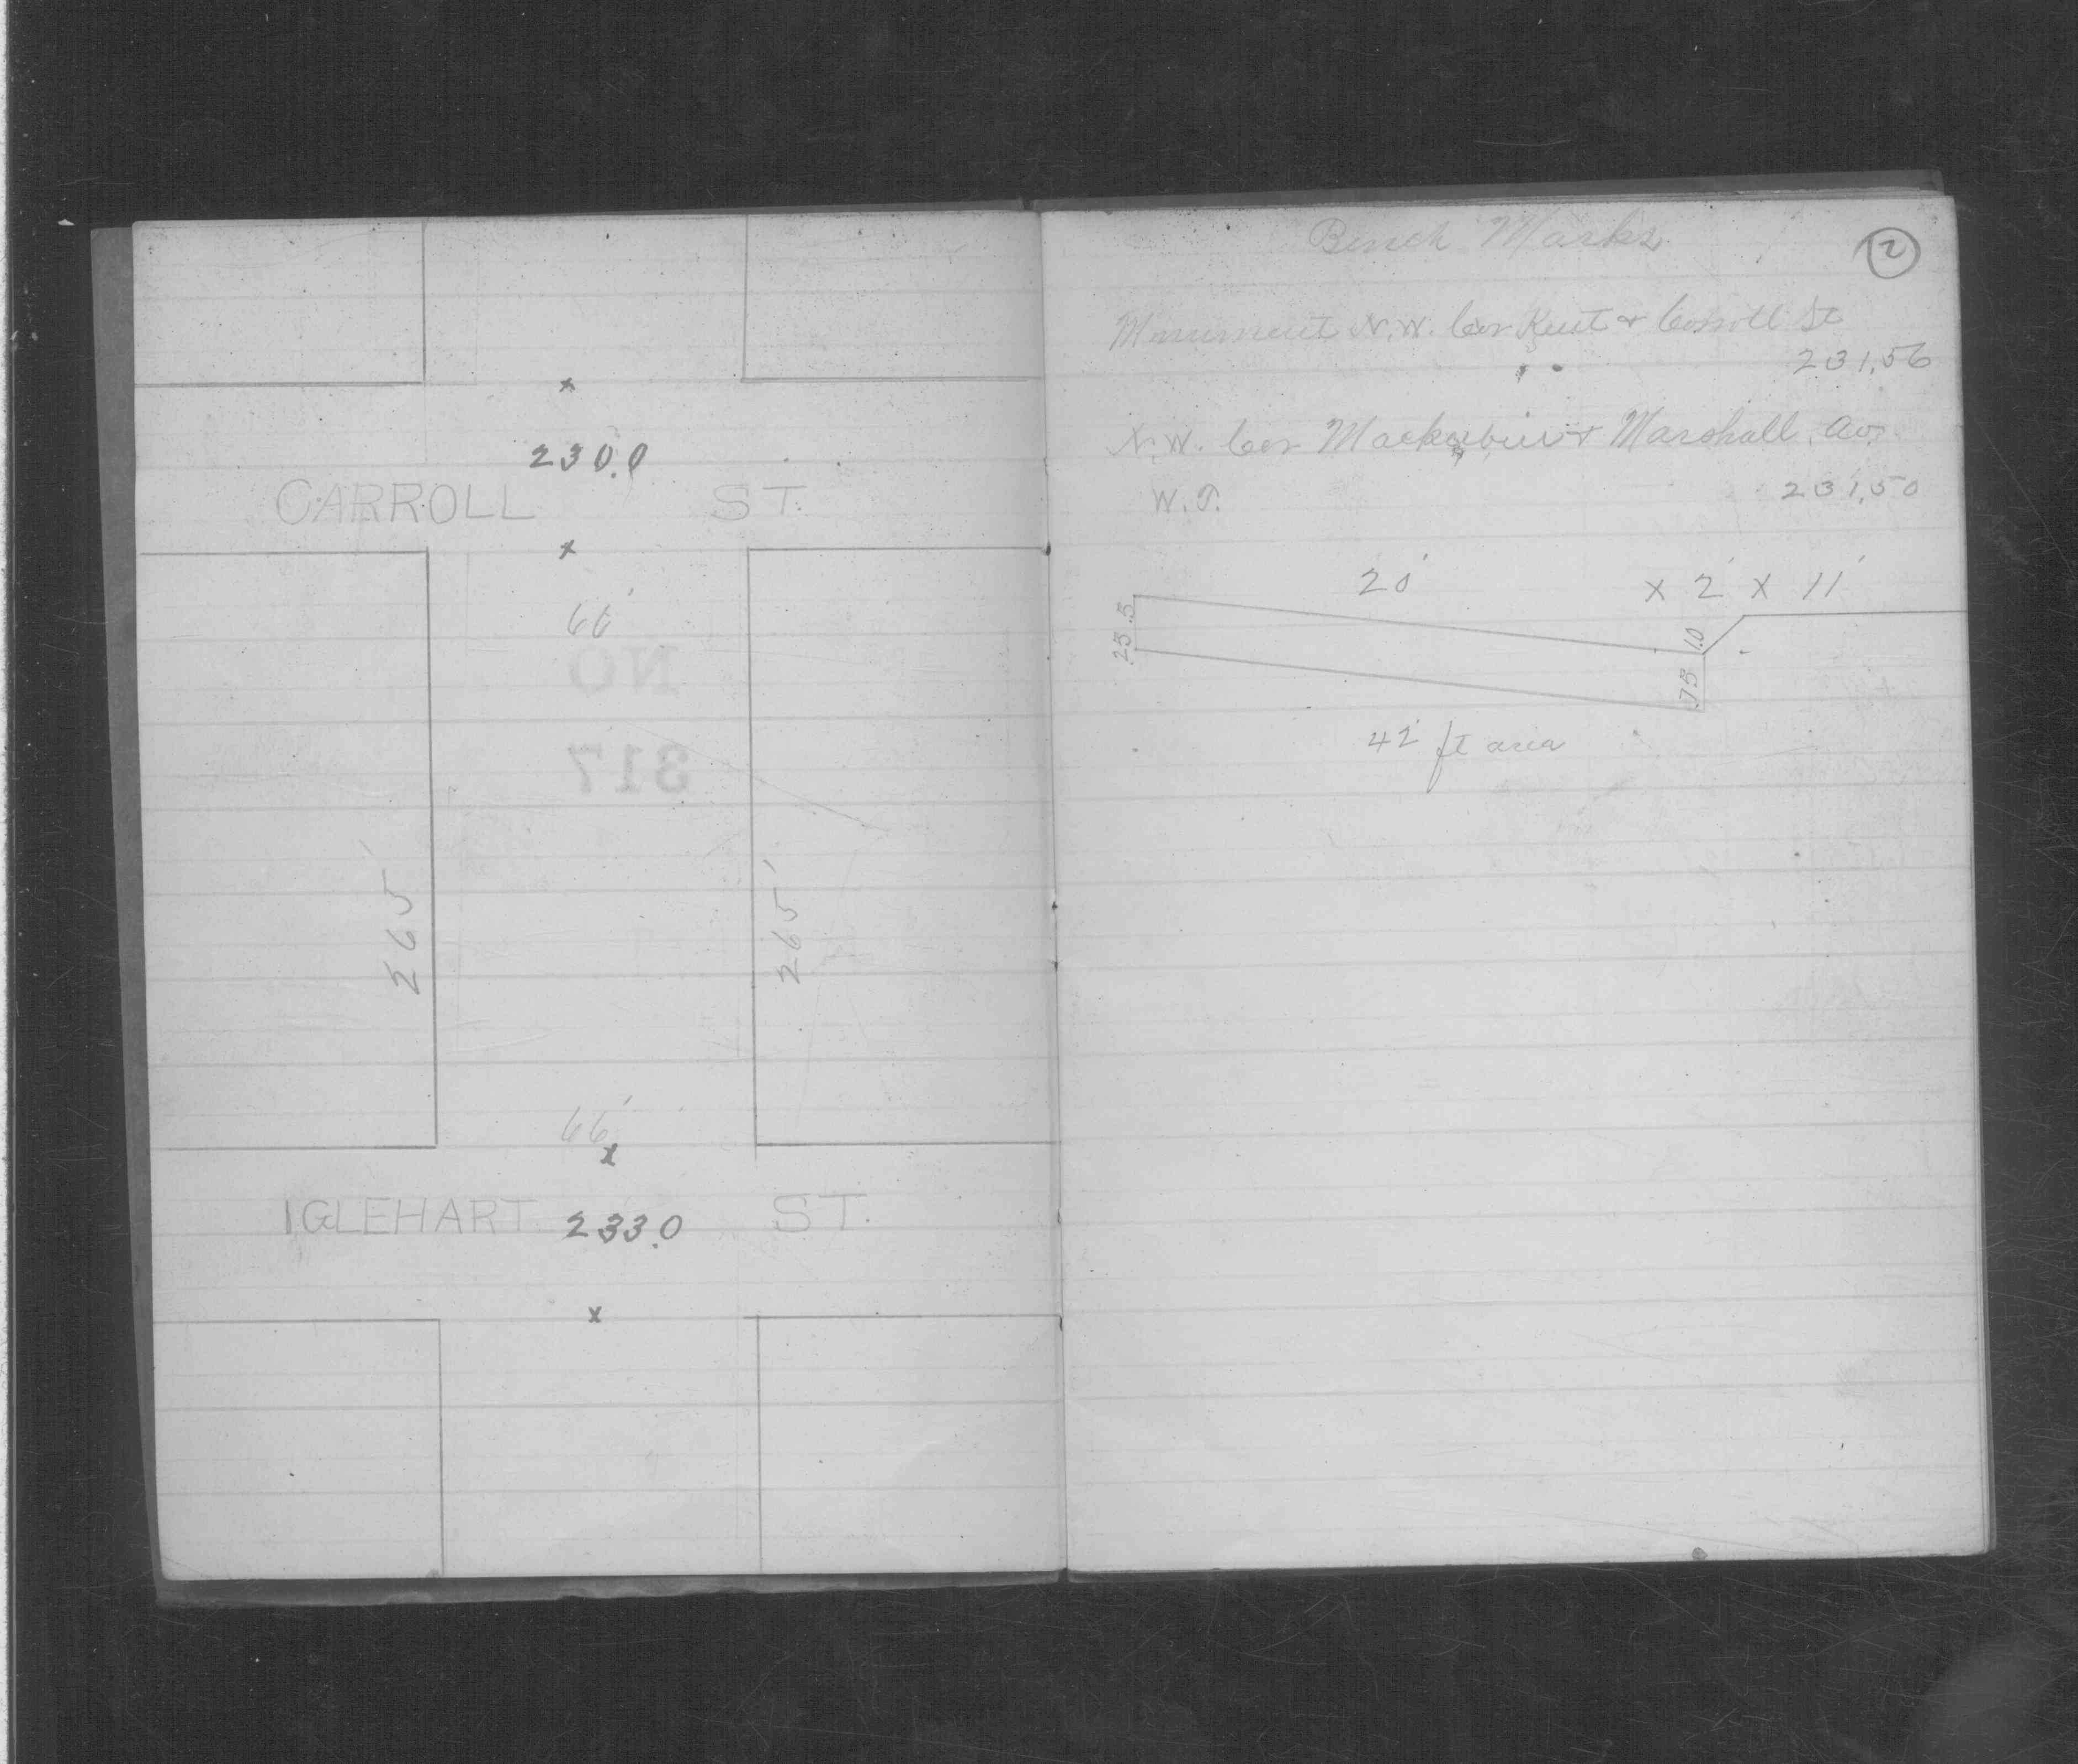 230.0
CARROLL ST.
66'
NO
317
265'
265'
66'
IGLEHART 233.0 ST.
Bench Marks
2
Monument N.W. Cor Kent & Carroll St
231.56
N.W. Cor Mackubin & Marshall Av.
W.T. 231.50
20' x 2' x 11'
.5
.25
1.0
.75
42' ft area